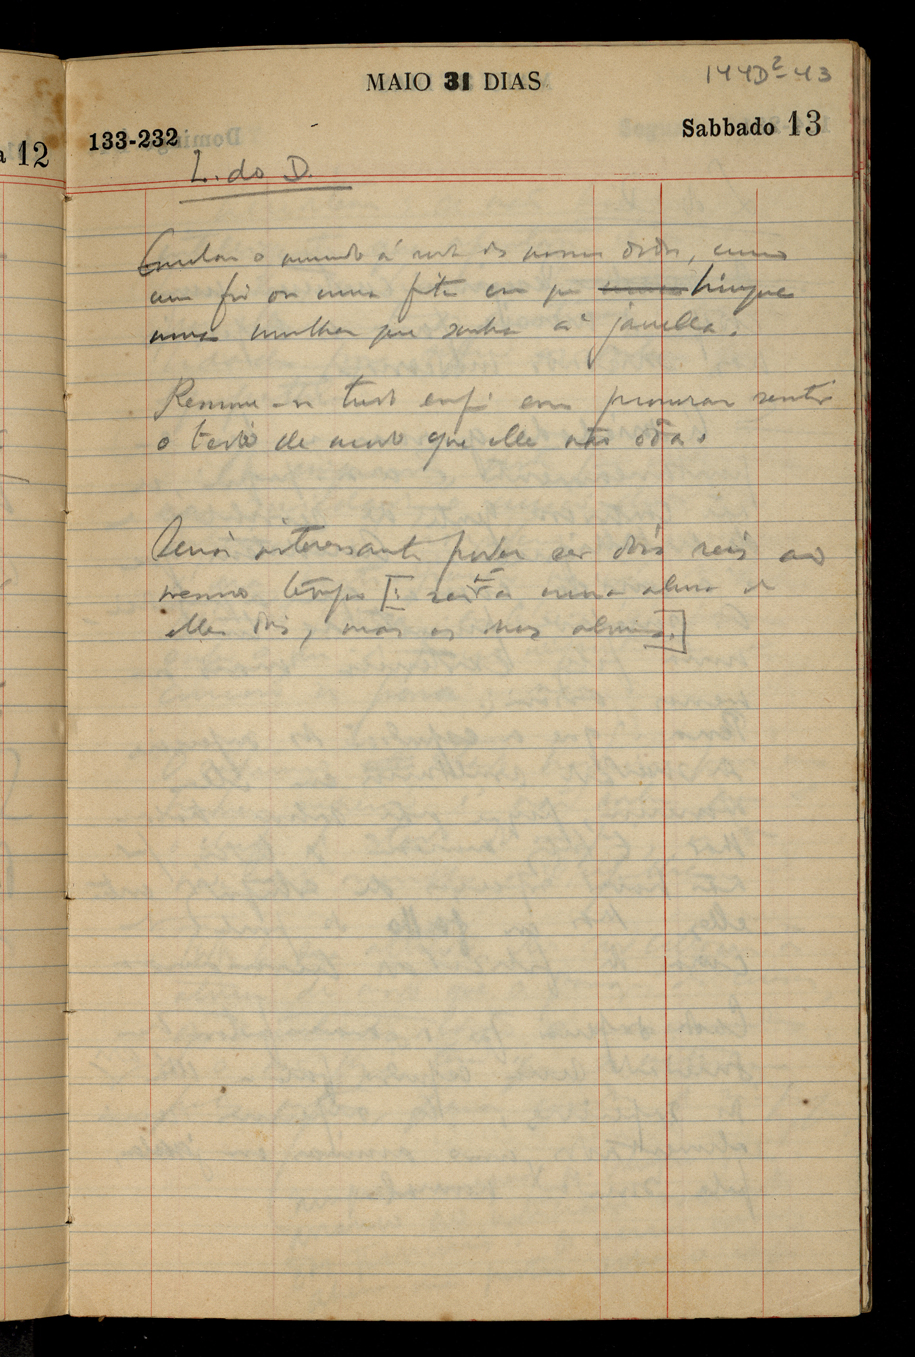 MAIO 31 DIAS
144D²-43
133-232
Sabbado 13
a 12
L. do D.
Enrolar o mundo á roda dos nossos dedos, como
um fio ou uma fita com que brinque
uma mulher que sonha á janella.
Resume-se tudo enfim em procurar sentir
o tedio de modo que elle não dôa.
Seria interessante poder ser dois reis ao
mesmo tempo [: ser não a uma alma de
elles dois, mas as duas almas.]